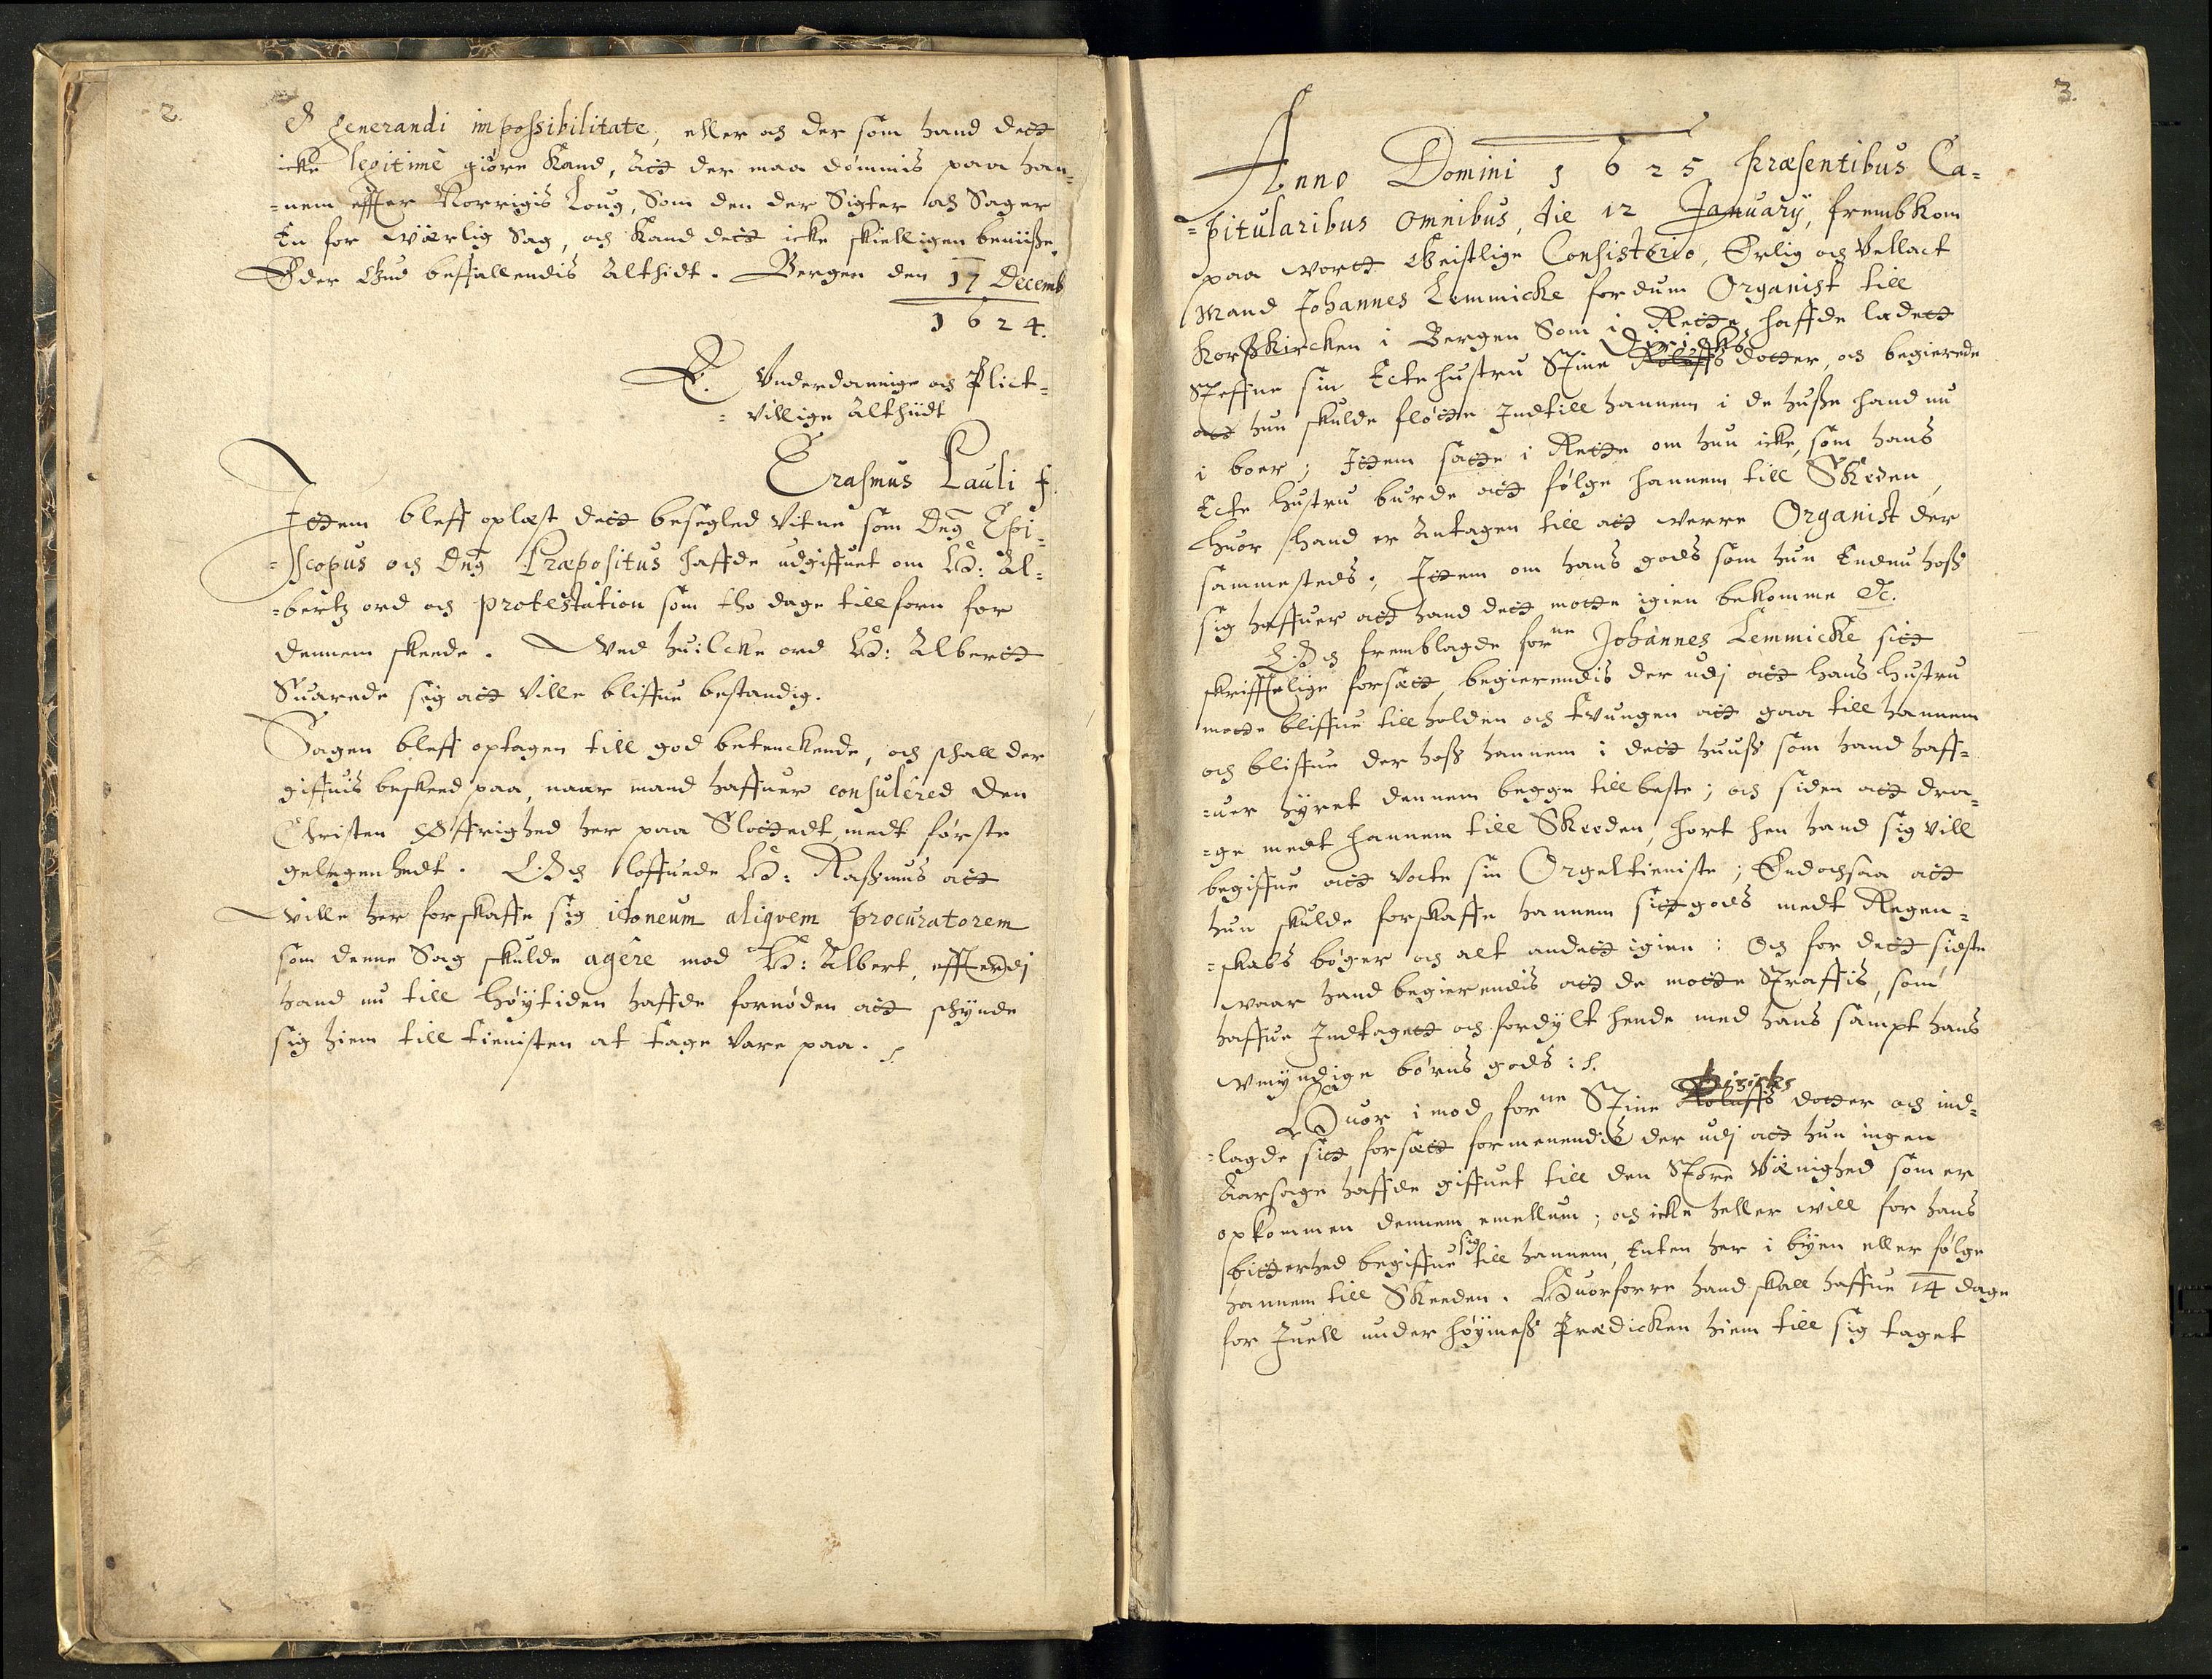 2.
& generandi impossibilitate, eller och der som hand dett
icke legitimè giøre kand, att der maa dømmis paa han-
=nem effter Norrigis Loug, Som den der Sigter och Sager
En for uærlig Sag, och kand dett icke skielligen beuiiße.
Eder Gud beffallendis althidt. Bergen den 17 Decemb
1624.
E. Vnderdannige och Plict=
=villige altthiidt
Erasmus Pauli f.
Ittem bleff oplæst dett besegled Vitne som Dng Epi=
=scopus och Dng Præpositus haffde udgiffuet om H: Al=
=bertz ord och protestation som tho dage tillforn for
dennem skeede. Ved huilcke ord H: Albertt
Suarede sig att ville bliffue bestandig.
Sagen bleff optagen till god betenckende, och schall der
giffuis beskeed paa, naar mand haffuer consulered den
Christen Øffrighed her paa Slottedt medt første
gelegenhedt. Och loffuede H: Raßmus att
ville her forskaffe sig idoneum aliqvem procuratorem
som denne Sag skulde agêre mod H: Albert, effterdj
hand nu till Høytiden haffde fornøden att schynde
sig hiem till tienisten at tage vare paa. S.
3.
Anno Domini 1625 præsentibus Ca=
=pitularibus omnibus, die 12 Januarÿ, frembkom
paa vortt Geistlige Consistorio, Erlig och Vellact
Mand Johannes Lemmicke fordum Organist till
Korßkircken i Bergen Som i Rette haffde ladett
Diricks
Steffne sin Ecte hustru Stine Roluffs dotter, och begierede
att hun skulde fløtte Indtill hannem i de huße hand nu
i boer; Ittem satte i Rette om hun icke, som hans
Ecte hustru burde att følge hannem till Skeden,
huor hand er Antagen till att verre Organist der
sammesteds; Ittem om hans gods som hun Endnu hoß
sig haffuer att hand dett motte igien bekomme &c.
Och fremblagde forne Johannes Lemmicke sitt
skrifftlige forsætt, begierendis der udj att hans hustru
motte bliffue till holden och tvungen att gaa till hannem
och bliffue der hoß hannem i dett huuß som hand haff=
=uer hÿret dennem begge till beste; och siden att dra=
=ge medt hannem till Skeeden, hort hen hand sig vill
begiffue att vacte sin Orgeltieniste; Endochsaa att
hun skulde forskaffe hannem sitt gods medt Regen=
=skabs bøger och alt andett igien: Och for dett sidste
vaar hand begierendis att de motte Straffis, som
haffue Indtagett och fordÿlt hende med hans sampt hans
umÿndige børns gods: S.
Diricks
Huor imod forne Stine Roluffs dotter och ind=
=lagde sitt forsætt formenendis der udj att hun ingen
Aarsage haffde giffuet till den Store Vænighed som er
opkommen dennem emellum; och icke heller will for hans
sig
bitterhed begiffue till hannem, Enten her i bÿen eller følge
hannem till Skeeden. Huorforre hand skall haffue 14 dage
for Juell under høÿmeß Prædicken hiem till sig taget